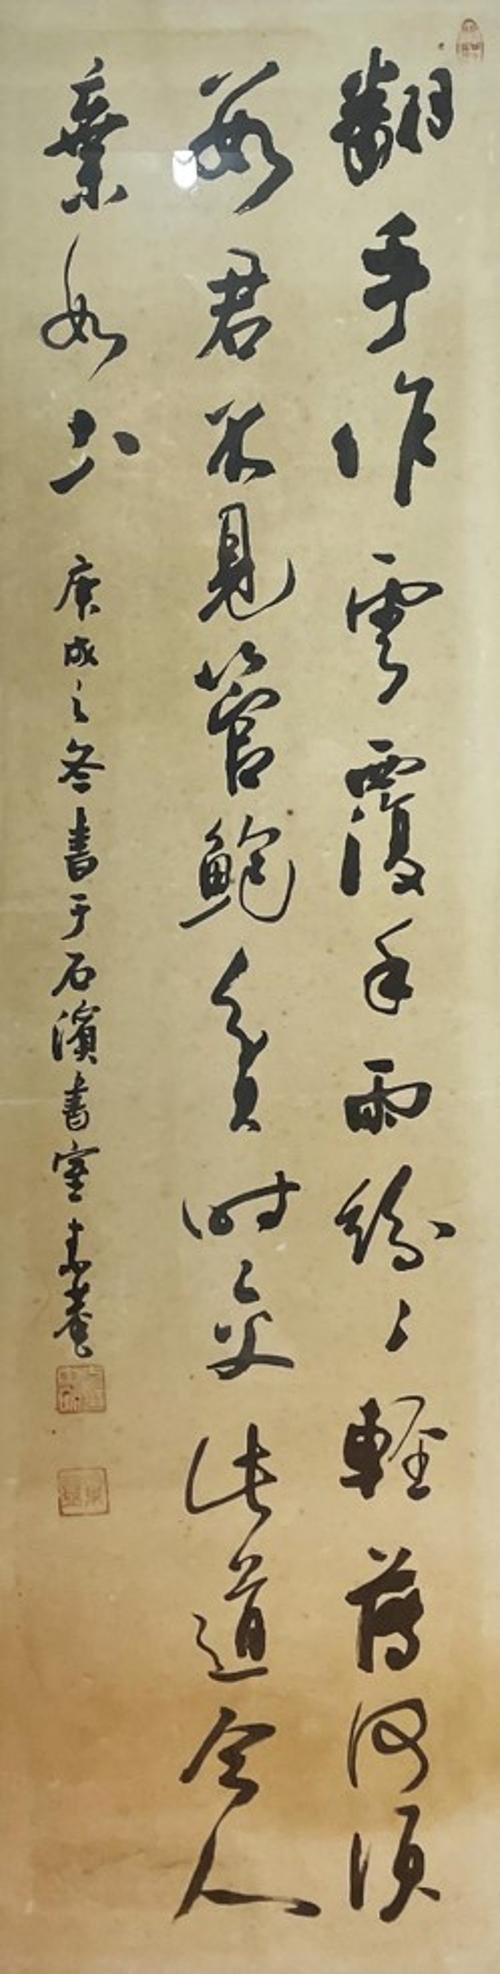 翻手作雲覆手雨紛〻輕薄何須
數君不見管鮑貧時交此道今人
棄如土 庚戌之冬書于石濱書室